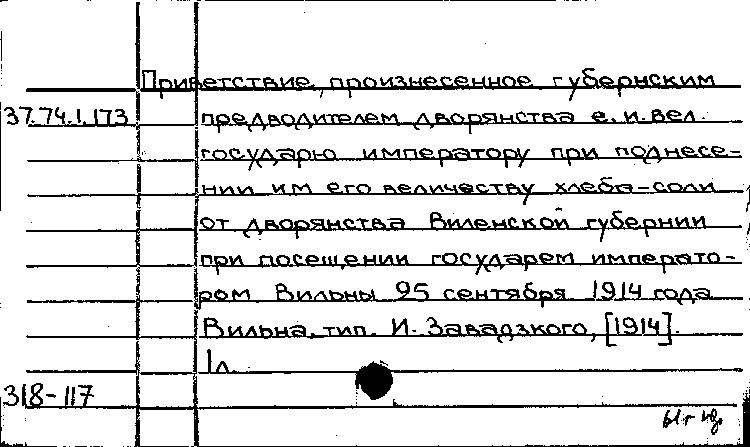 Приветствие, произнесенное губернским
37.74.1.173 предводителем дворянства е. и. вел.
государю императору при поднесе-
нии им его величеству хлеба-соли
от дворянства Виленской губернии
при посещении государем императо-
ром Вильны 25 сентября 1914 года
Вильна, тип. И. Завадзкого, [1914].
1 л.
318-117